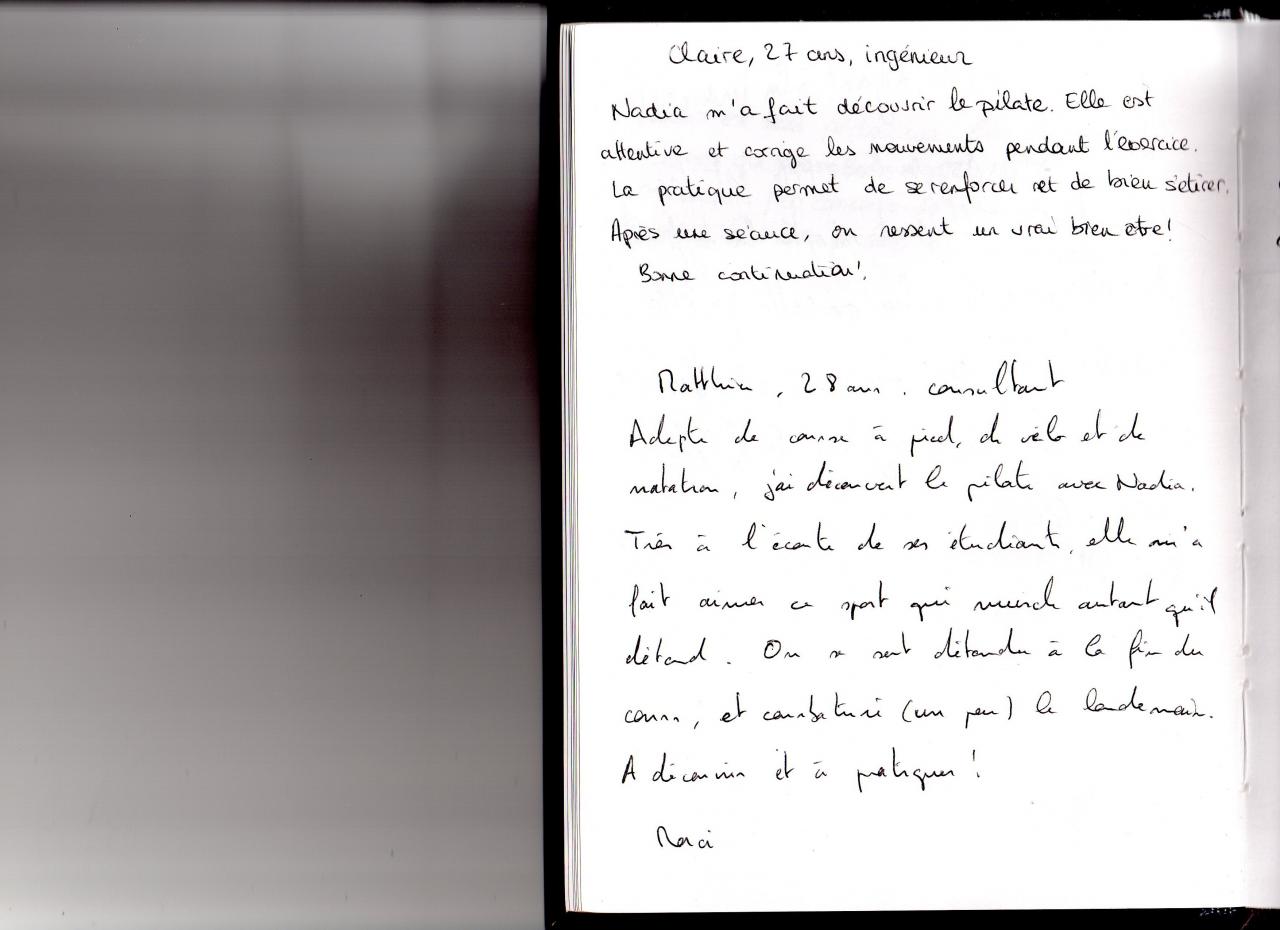 Claire, 27 ans, ingénieur
Nadia m'a fait découvrir le pilate. Elle est
attentive et corrige les mouvements pendant l'exercice.
La pratique permet de se renforcer et de bien s'etirer.
Après une séance, on ressent un vrai bien etre!
Bonne continuation!
Matthieu, 28 ans. consultant
Adepte de course à pied, de vélo et de
natation, j'ai découvert le pilate avec Nadia.
Très à l'écoute de ses étudiants, elle m'a
fait aimer ce sport qui muscle autant qu'il
détend. On se sent détendu à la fin du
cours, et courbaturé (un peu) le lendemain.
A découvrir et à pratiquer!
Merci